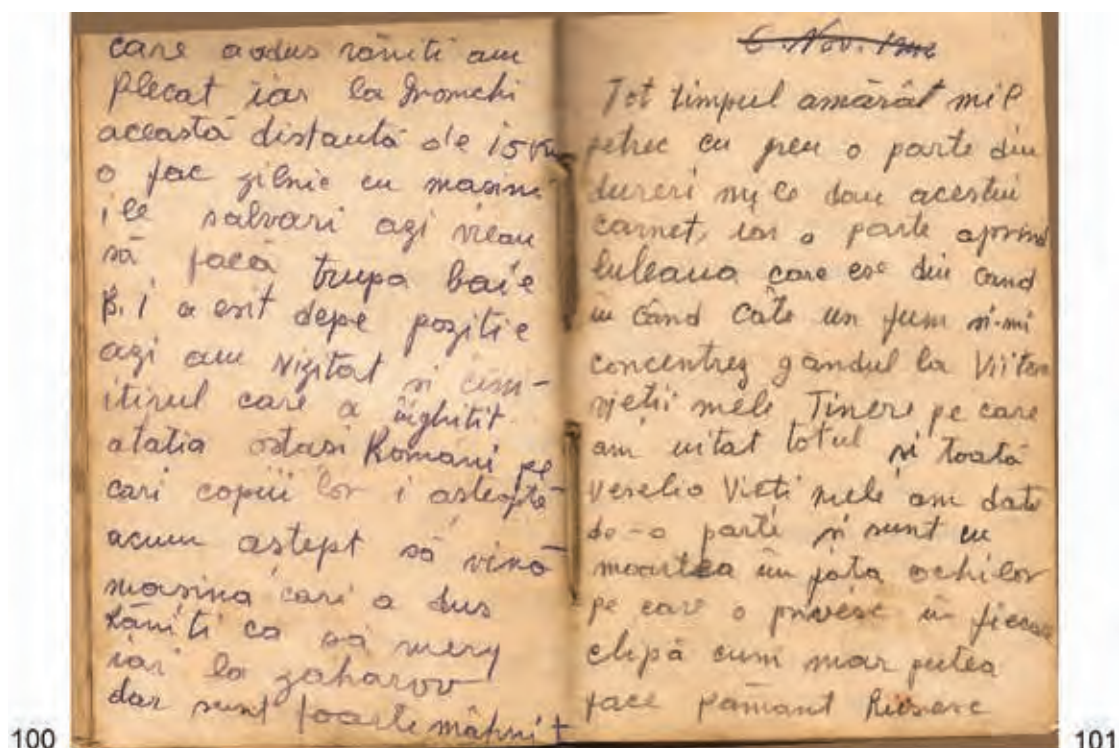 care aodus răniti am
plecat iar la Gromchi
această distantă de 15 km
o fac zilnic cu masini
ile salvari azi vreau
să facă trupa baie
B. I a esit depe pozitie
azi am vizitat si cimi-
itirul care a înghitit
atatia ostasi Romani pe
cari copiii lor i asteaptă
acum astept să vină
masina cari a dus
răniti ca să merg
iar la zaharov
dar sunt foarte mâhnit
100
6. Nov. 1942
Tot timpul amărât mi-l
petrec cu greu o parte din
dureri le dau acestui
carnet, iar o parte aprind
luleaua care ese din cand
in când câte un fum si-mi
concentrez gandul la Viitoru
vietii mele Tinere pe care
am uitat totul si toată
Veselia Vieti mele am dato
de-o parte si sunt cu
moartea în fata ochilor
pe care o privesc in fiecare
clipă cum mar putea
face pamant Rusesc
101